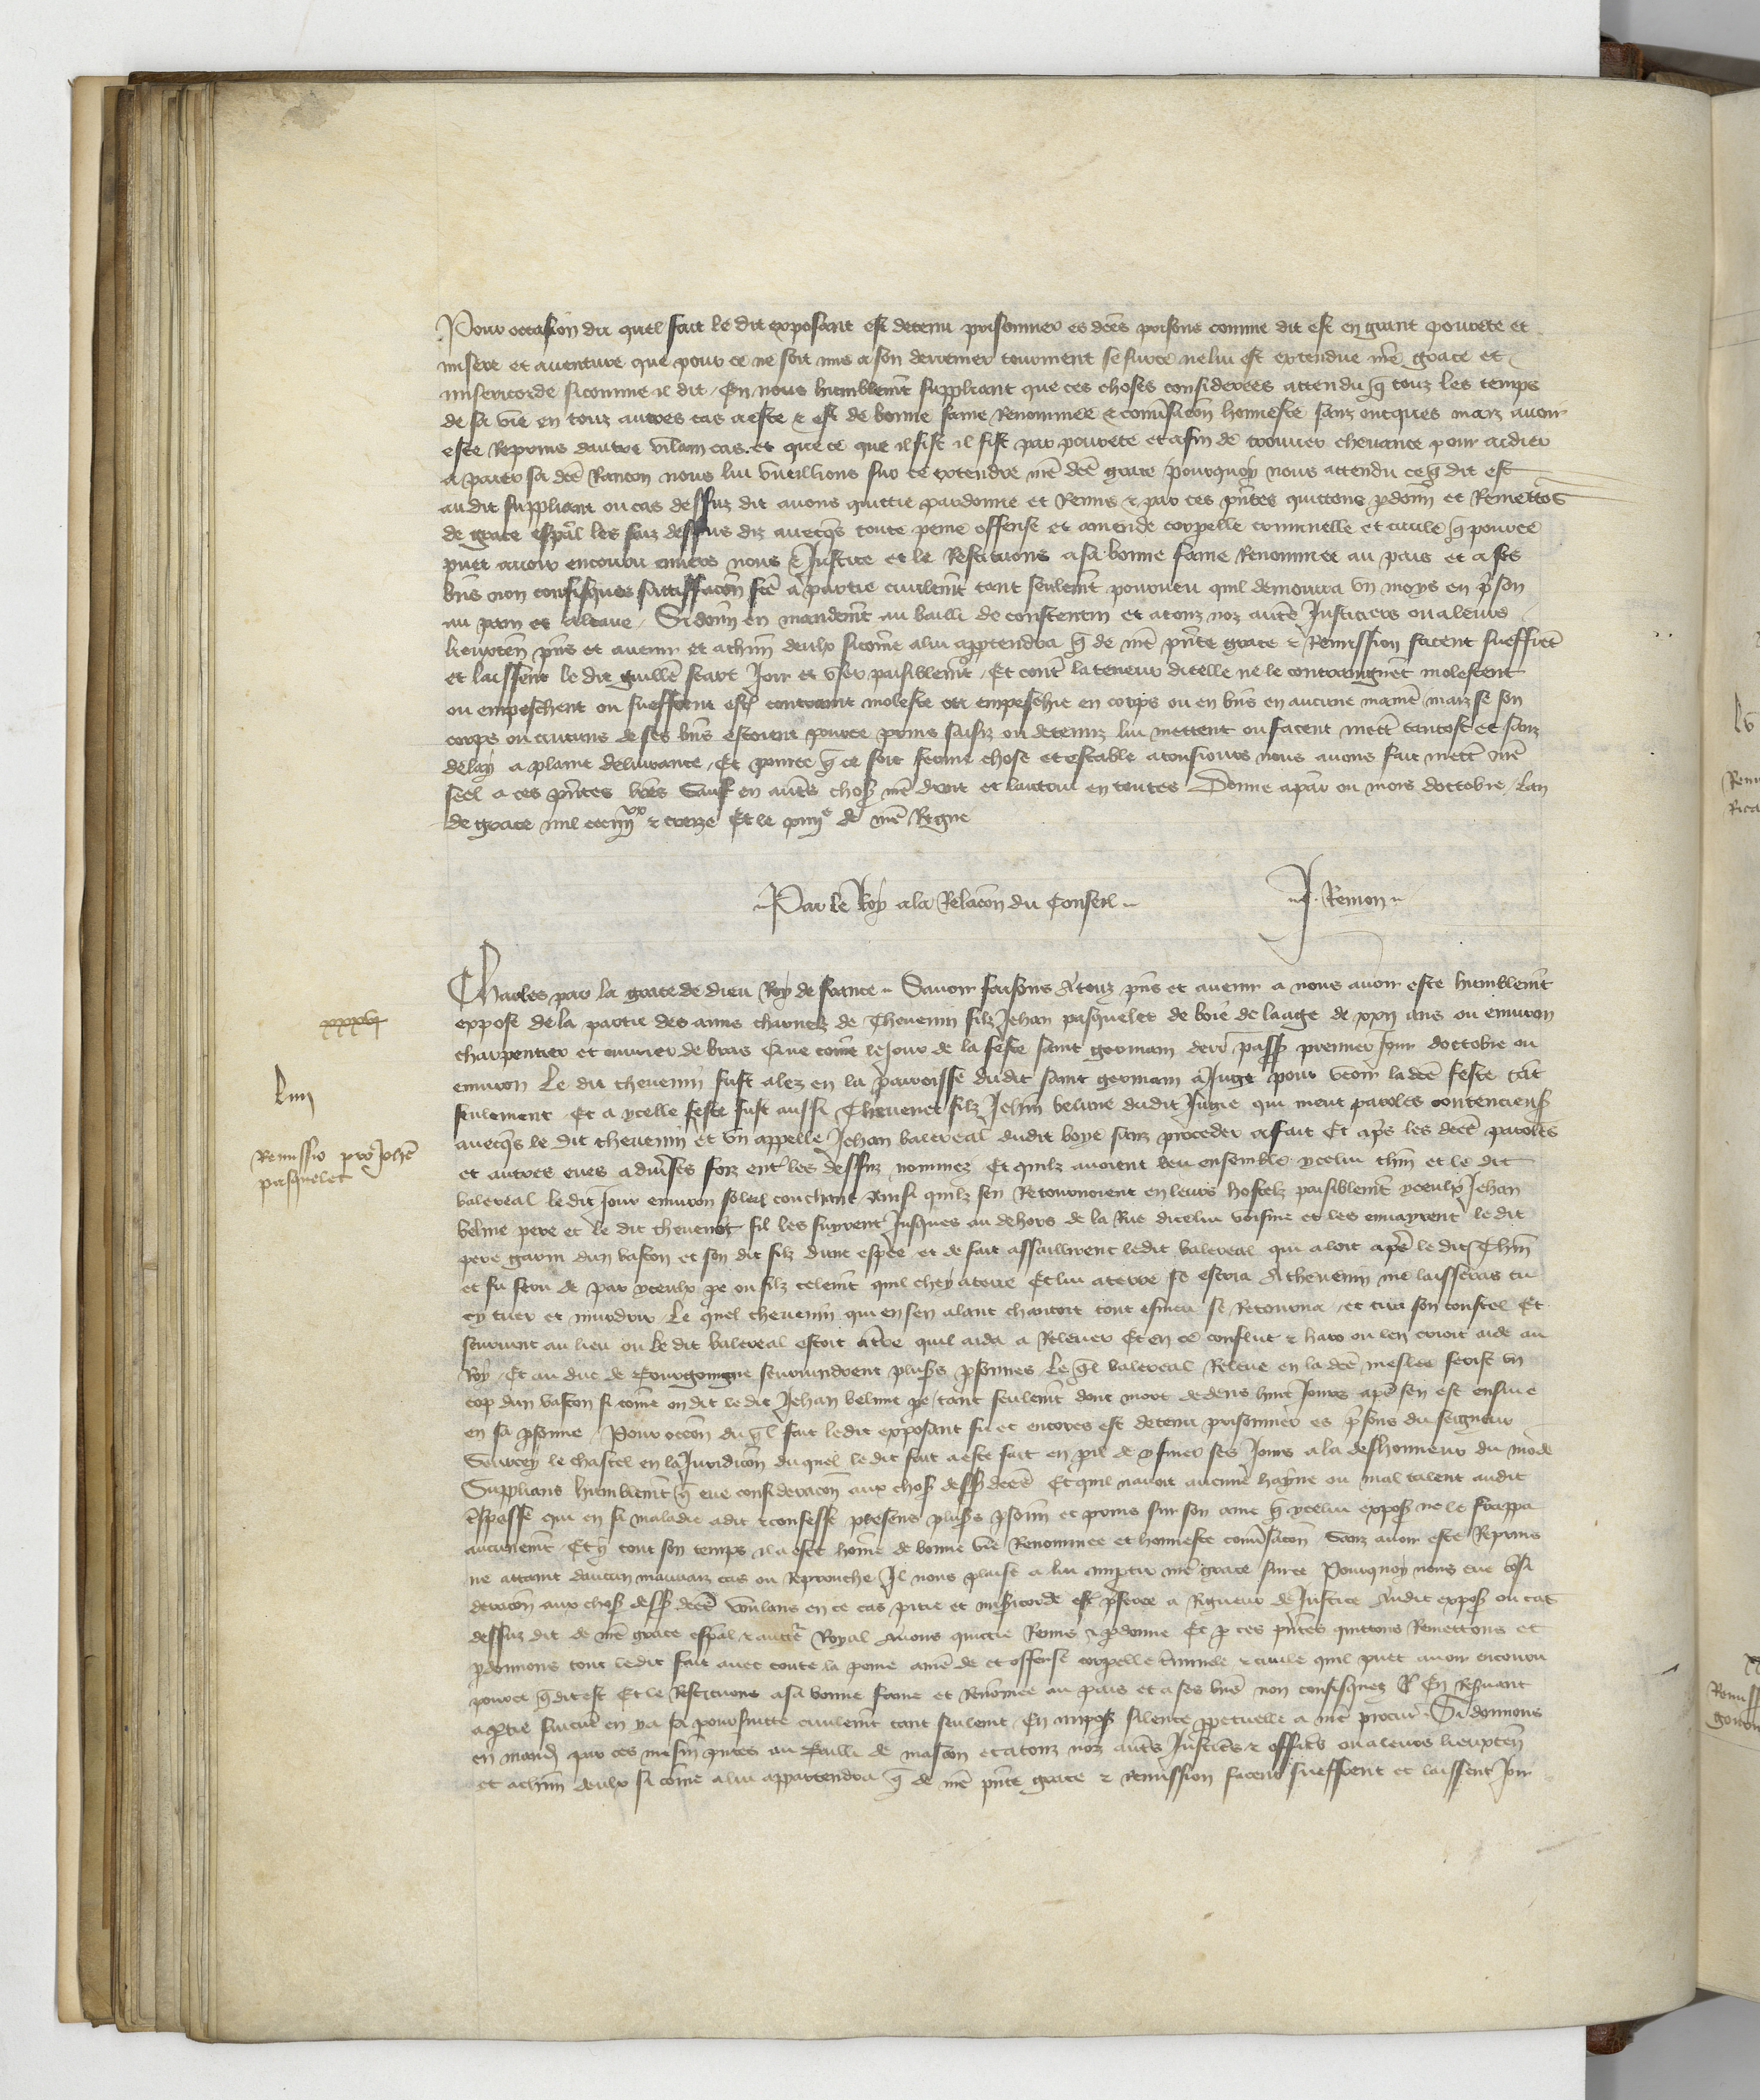 Pour occasion du quel fait le dit exposant est detenu prisonnier es dces prisons comme dit est en grant povrete et
misere et aventure que pour ce ne soit mis a son derrenier tourment se sur ce ne lui est extendue nre grace et
misericorde sicomme il dit En nous humblemt suppliant que ces choses considerees attendu q touz les temps
de sa vie en touz autres cas a este & est de bonne fame Renommee & conversacon honneste sanz oncques mais avoir
este Repris dautre vilain cas et que ce que il fist il fist par povrete et afin de trouver chevance pour aidier
a paier sa dce Rancon nous lui vueillions sur ce extendre nre dce grace pourquoy nous attendu ce q dit est
audit suppliant ou cas dessuz dit avons quittie pardonne et Remis & par ces pntes quittons pdonn et Remettos
de grace espal les faiz dessus diz avecqs toute peine offense et amende corpelle criminelle et civile q pour ce
puet avoir encouru envers nous & Justice et le Restituons a sa bonne fame Renommee au pais et a ses
bns non confisques satisfacon fce a partie civilemt tant seulemt pourveu quil demourra un moys en pson
au pain et a leaue Si donn en mandemt au bailli de constentin et a touz noz autres Justiciers ou a leurs
lieuxten pns et avenir et a chun deulx sicome a lui appartendra q de nre pnte grace & Remission facent sueffrent
et laissent le dit guille scart Joir et user paisiblemt Et contre la teneur dicelle ne le contraingnent molestent
ou empeschent ou sueffrent estre contraint moleste ou empeschie en corps ou en bns en aucune maniere maiz se son
corps ou aucuns de ses bns estoient pour ce prins saisiz ou detenuz lui mettent ou facent mettre tantost et sanz
delay a plaine delivrance Et pource q ce soit ferme chose et estable a tousiours nous avons fait mettre nre
seel a ces pntes lres Sauf en autres choses nre droit et lautrui en toutes Donne a paris ou mois doctobre Lan
de grace mil ccc iiijxx & treize Et le xiiije de nre Regne
Par le Roy a la Relacon du Conseil
J. Remon
Charles par la grace de dieu Roy de france Savoir faisons A touz pns et avenir a nous avoir este humblemt
expose de la partie des amis charnelz de Thevenin filz Jehan pasquelet de boie de laage de xxij ans ou environ
charpentier et ouvrier de bras Que come le Jour de la feste saint germain derr passe premier Jour doctobre ou
environ Le dit thevenin fust alez en la parroisse dudit saint germain a Juge pour veoir la dce feste tat
seulement Et a ycelle feste fust aussi Thevenet filz Jehan beline dudit Jugie qui meut paroles contencieuses
avecqs le dit thevenin et un appelle Jehan balereal dudit boye sanz proceder a fait Et aps les dces paroles
et autres eues a diverses foiz entre les dessuz nommez Et quilz avoient beu ensemble ycelui thni et le dit
balereal le dit Jour environ soleil couchant Ainsi quilz sen Retournoient en leurs hostelz paisiblemt yceulx Jehan
beline pere et le dit thevenot fil les suyrent Jusques au dehors de la Rue dicelui voisine et les envayrent le dit
pere garni dun baston et son dit filz dune espee et de fait assaillirent ledit balereal qui aloit apres le dit Thni
et fu feru de par yceulx pe ou filz telemt quil chey a terre Et lui a terre se escria A thevenin me laisseras tu
cy tuer et murdrir Le quel thevenin qui en sen alant chantoit tout esmeu se Retourna et tira son coustel Et
seurvint au lieu ou le dit balereal estoit a terre quil aida a Relever Et en ce conflict & haro ou len crioit aide au
Roy Et au duc de Bourgoingne seurvindrent pluss personnes Le ql balereal Releve en la dce meslee ferist un
cop dun baston si come on dit le dit Jehan beline pe tant seulemt dont mort dedens huit Jours apres sen est ensuie
en sa psonne Pour occon du ql fait ledit exposant fu et encores est detenu prisonnier es psons du seigneur
Seurcey le chastel en la Juridicon duquel le dit fait a este fait en pil de y finer ses Jours a la deshonneur du mode
Supplians humblemt q eue consideracon aux choses desss dces Et quil navoit aucune hayne ou mal talent audit
trespasse qui en sa maladie a dit & confesse presens pluss psonn et prins sur son ame q ycelui exposs ne le frappa
aucunemt Et q tout son temps il a este home de bonne vie Renommee et honneste conversacon Sanz avoir este Reprins
ne attaint daucun mauvaiz cas ou Reprouche Il nous plaise a lui impartir nre grace sur ce Pourquoy nous eue csi
deracon aux choses desss dces voulans en ce cas pitie et misericorde estre pferee a Rigueur de Justice Audit exposs ou cas
dessuz dit de nre grace espal & auctre Royal Avons quictie Remis & pdonne Et p ces pntes quittons Remettons et
pdonnons tout ledit fait avec toute la peine amende et offense corpelle criminele & civile quil puet avoir encouru
pour ce q dit est Et le Restituons a sa bonne fame et Renomee au pais et a ses bns non confisquez En Reservant
a ptie sur ce en ya sa poursuitte civilemt tant seulemt En imposs silence ppetuelle a nre procur Si donnons
en mand par ces mesm pntes au Bailli de mascon et a touz noz autres Justiciers & officiers ou a leurs lieuxten
et a chun deulx si come a lui appartendra q de nre pnte grace & remission facent sueffrent et laissent Joir
xxxvj
Liiij
Remissio pro Johe
pasquelet